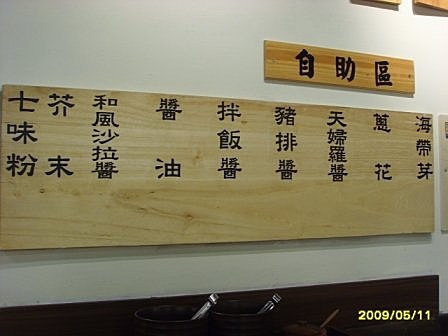 自助區
海帶芽
蔥花
天婦羅醬
豬排醬
拌飯醬
醬油
和風沙拉醬
芥末
七味粉
2009/05/11